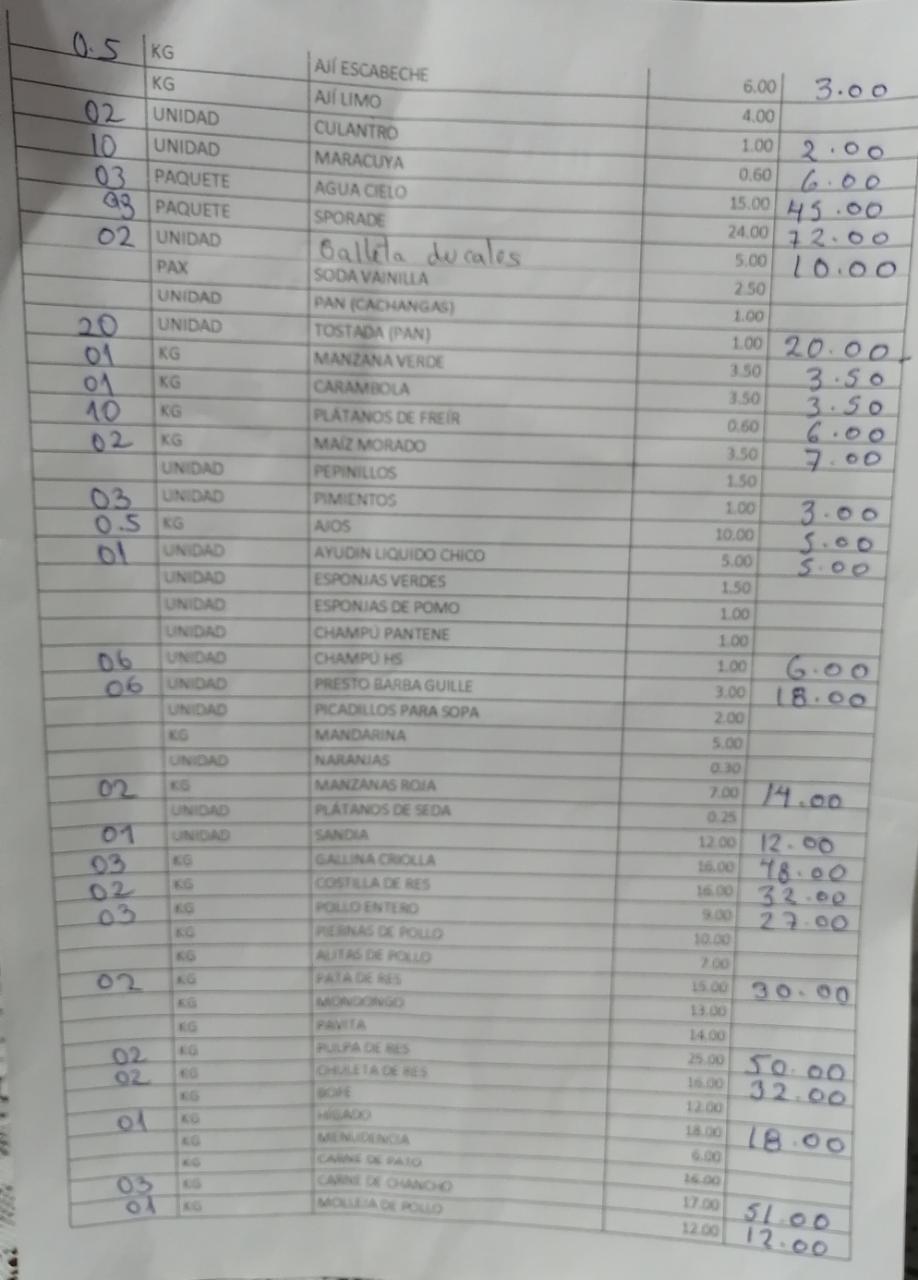 0.5 KG AJÍ ESCABECHE 6.00 3.00
KG AJÍ LIMO 4.00
02 UNIDAD CULANTRO 1.00 2.00
10 UNIDAD MARACUYA 0.60 6.00
03 PAQUETE AGUA CIELO 15.00 45.00
03 PAQUETE SPORADE 24.00 72.00
02 UNIDAD Galleta ducales 5.00 10.00
PAX SODA VAINILLA 2.50
UNIDAD PAN (CACHANGAS) 1.00
20 UNIDAD TOSTADA (PAN) 1.00 20.00
01 KG MANZANA VERDE 3.50 3.50
01 KG CARAMBOLA 3.50 3.50
10 KG PLÁTANOS DE FREÍR 0.60 6.00
02 KG MAÍZ MORADO 3.50 7.00
UNIDAD PEPINILLOS 1.50
03 UNIDAD PIMIENTOS 1.00 3.00
0.5 KG AJOS 10.00 5.00
01 UNIDAD AYUDIN LIQUIDO CHICO 5.00 5.00
UNIDAD ESPONJAS VERDES 1.50
UNIDAD ESPONJAS DE POMO 1.00
UNIDAD CHAMPÚ PANTENE 1.00
06 UNIDAD CHAMPÚ HS 1.00 6.00
06 UNIDAD PRESTO BARBA GUILLE 3.00 18.00
UNIDAD PICADILLOS PARA SOPA 2.00
KG MANDARINA 5.00
UNIDAD NARANJAS 0.30
02 KG MANZANAS ROJA 7.00 14.00
UNIDAD PLÁTANOS DE SEDA 0.25
01 UNIDAD SANDIA 12.00 12.00
03 KG GALLINA CRIOLLA 16.00 48.00
02 KG COSTILLA DE RES 16.00 32.00
03 KG POLLO ENTERO 9.00 27.00
KG PIERNAS DE POLLO 10.00
KG ALITAS DE POLLO 7.00
02 KG PATA DE RES 15.00 30.00
KG MONDONGO 13.00
KG PAVITA 14.00
02 KG PULPA DE RES 25.00 50.00
02 KG CHULETA DE RES 16.00 32.00
KG BOFE 12.00
01 KG HÍGADO 18.00 18.00
KG MENUDENCIA 6.00
KG CARNE DE PATO 16.00
03 KG CARNE DE CHANCHO 17.00 51.00
01 KG MOLLEJA DE POLLO 12.00 12.00